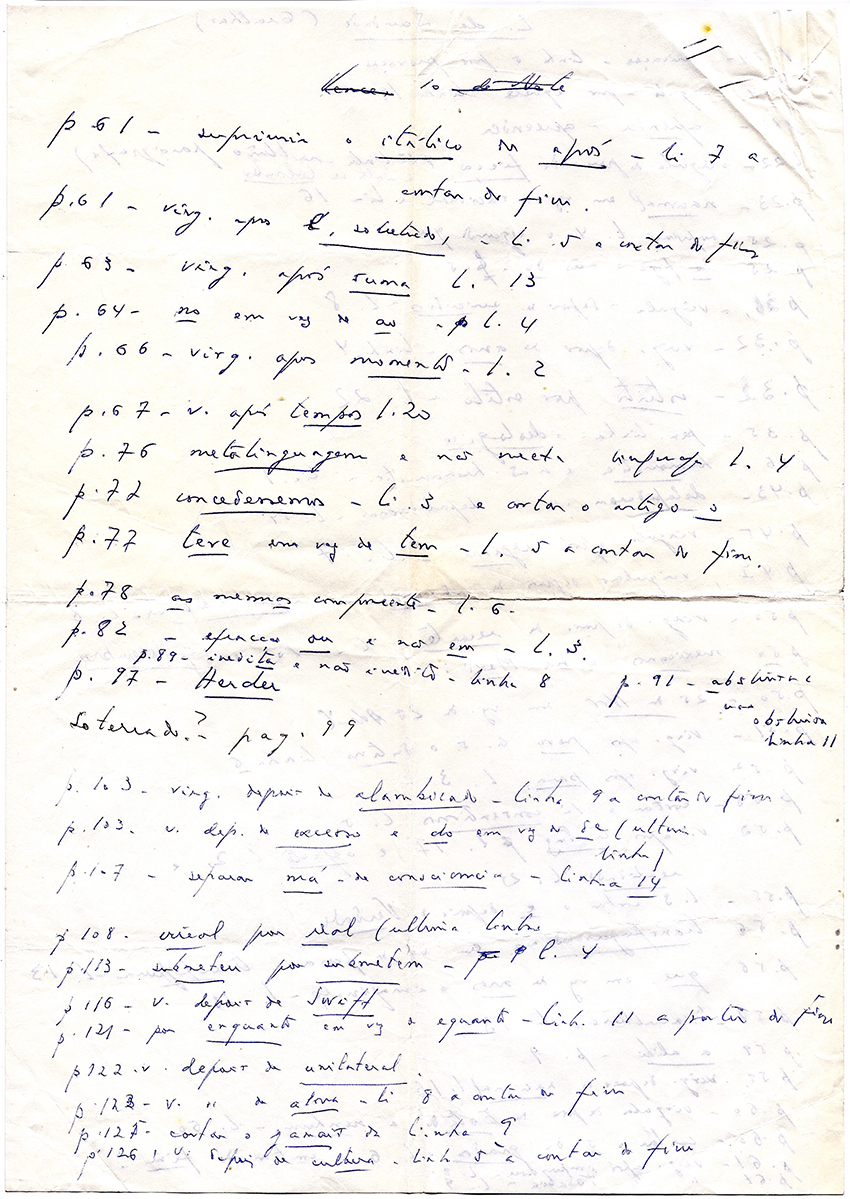 10
p. 61 – suprimir o itálico em após – li 7 a
contar do fim.
p. 61 – virg. apos É, sobretudo, – l. 5 a contar do fim
p. 63 – virg. após suma l. 13
p. 64 – no em vez de ao – l. 4
p. 66 – virg. apos momento – l. 2
p. 67 – v. após tempos l. 20
p. 76 metalinguagem e não linguagem l. 4
p. 77 concedessemos – li. 3 e cortar o artigo o
p. 77 teve em vez de tem – l. 5 a contar do fim.
p. 78 as mesmas – l. 6 –
p. 82 – ou e não em – l. 3.
p. 89 – inedita e não inedito – linha 8
p. 97 – Herder
p. 91 – abstrusa e
não
obstrusa
linha 11
Soterrado? – pag. 99
p. 103 – virg. depois de alambicado – linha 9 a contar do fim
p. 103 – v. dep. de excesso e do em vez de se (ultima
linha)
p. 107 – separar má – de consciencia – linha 14
p 108 – por real (ultima linha
p. 113 – submeteu por submetem – l. 4
p. 116 – v. depois de Swift
p. 121 – por enquanto em vez de equanto – linh. 11 a partir do fim
p 122 – v. depois de unilateral.
p. 123 – v. " de – li 8 a contar do fim
p. 125 – cortar o jamais da linha 9
p. 126, v. depois de cultura – linh 5 a contar do fim